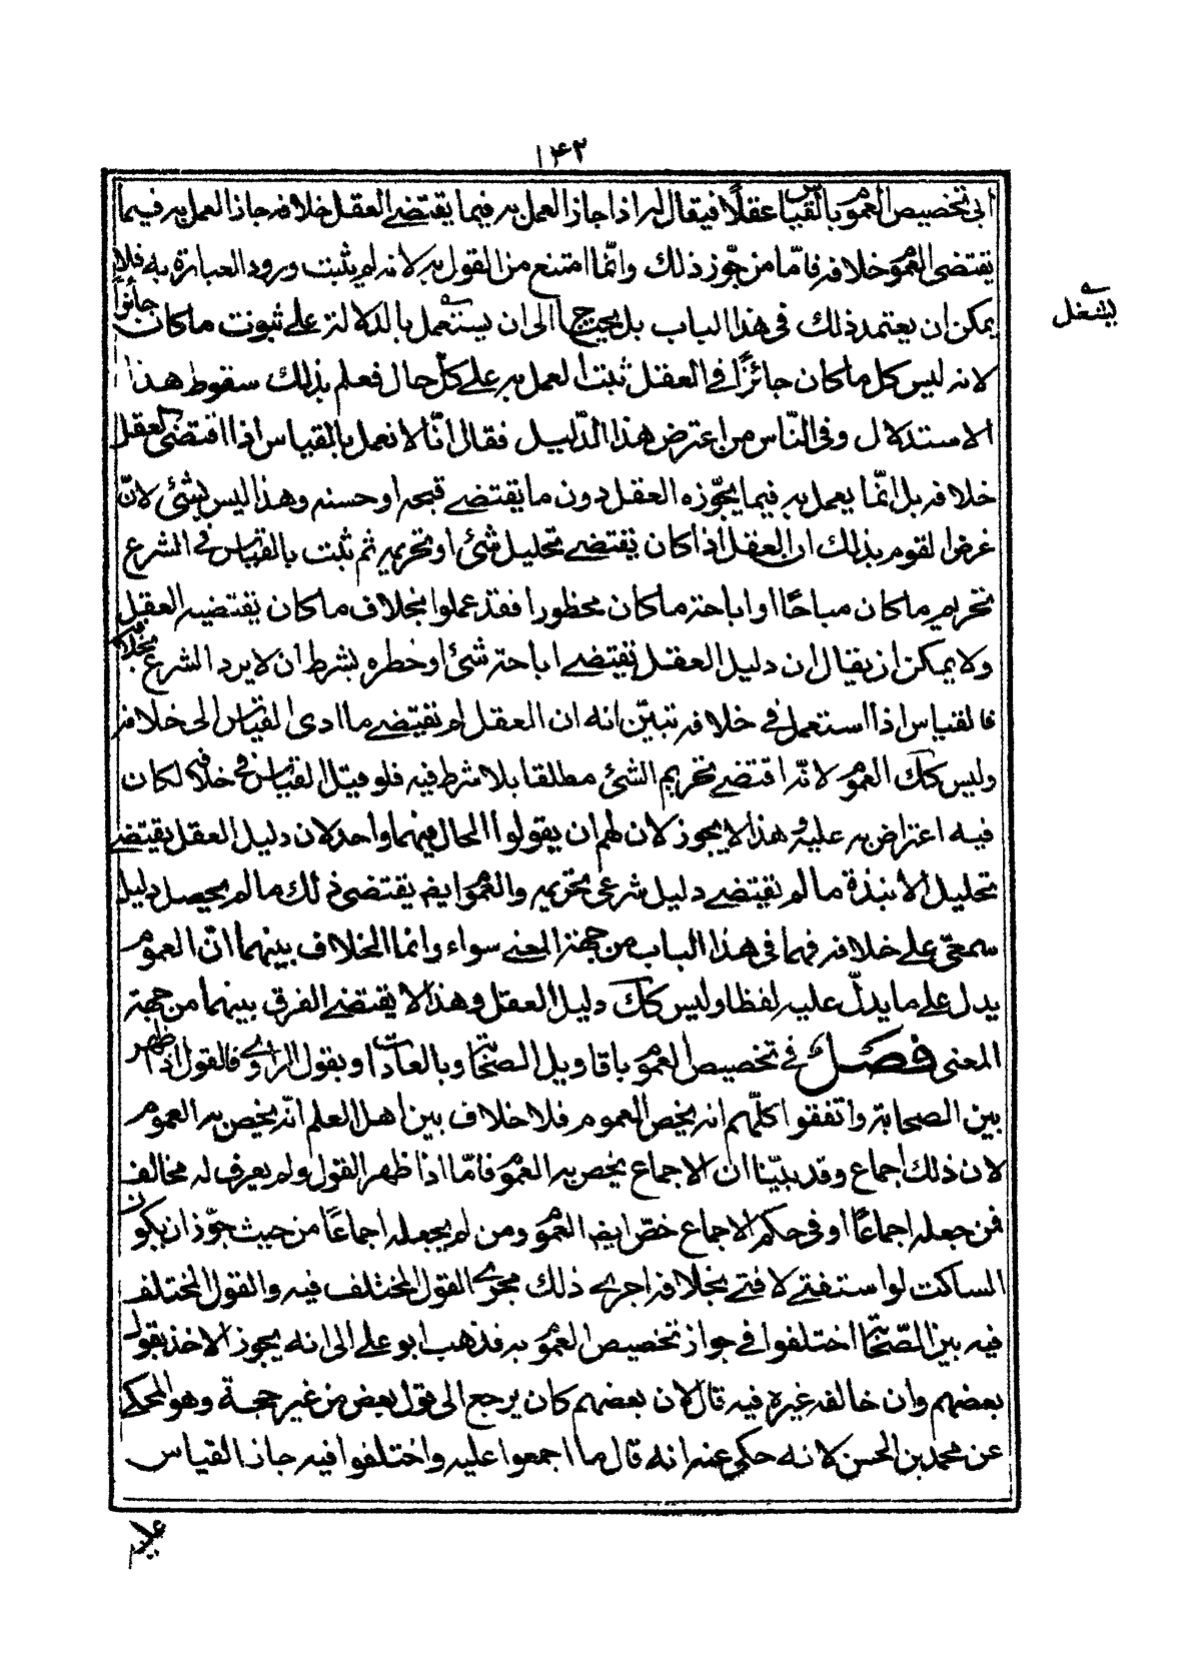 ١٤٢
ابى تخصيص العموم بالقياس عقلًا فيقال له اذا جاز العمل به فيما يقتضى العقل خلافه جاز العمل به فيما
يقتضى العموم خلافه فامّا من جوّز ذلك وانّما امتنع من القول به لانه لم يثبت ورود العبارة به فلا
يمكن ان يعتمد ذلك فى هذا الباب بل يحتاج الى ان يستعمل بالدلالة على ثبوت ما كان جائزًا
يشغل
لانه ليس كل ما كان جائزًا في العقل ثبت العمل به على كلّ حال فعلم بذلك سقوط هذا
الاستدلال وفى النّاس من اعترض هذا الدّليل فقال انّا لا نعمل بالقياس اذا اقتضى العقل
خلافه بل انّما يعمل به فيما يجوّزه العقل دون ما يقتضى قبحه او حسنه وهذا ليس بشئ لانّ
غرض القوم بذلك ان العقل اذا كان يقتضى تحليل شئ او تحريمه ثم ثبت بالقياس فى الشرع
تحريم ما كان مباحًا او اباحة ما كان محظورا فقد عملوا بخلاف ما كان يقتضيه العقل
ولا يمكن ان يقال ان دليل العقل يقتضى اباحة شئ او خطره بشرط ان لا يرد الشرع بخلافه
فالقياس اذا استعمل فى خلافه تبيّن انه ان العقل لم يقتضى ما ادى القياس الى خلافه
وليس كك العموم لانّه اقتضى تحريم الشئ مطلقا بلا شرط فيه فلو قبل القياس فى خلافه لكان
فيه اعتراض به عليه وهذا لا يجوز لان لهم ان يقولوا الحال فيهما واحد لان دليل العقل يقتضى
تحليل الانبذة ما لم يقتضى دليل شرعى تحريمه والعموم ايضا يقتضى ذلك ما لم يحصل دليل
سمعىّ على خلافه فهما فى هذا الباب من جهة المعنى سواء وانما الخلاف بينهما انّ العموم
يدل على ما يدلّ عليه لفظا وليس كك دليل العقل وهذا لا يقتضى الفرق بينهما من جهة
المعنى فصل فى تخصيص العموم باقاويل الصحابة وبالعادات او بقول الراوى فالقول اذا ظهر
بين الصحابة واتفقوا كلّهم انه يخص العموم فلا خلاف بين اهل العلم انّه يخص به العموم
لان ذلك اجماع وقد بيّنا ان الاجماع يخص به العموم فامّا اذا ظهر القول ولم يعرف له مخالف
فمن جعله اجماعًا او فى حكم الاجماع خصّ ايضا العموم ومن لم يجعله اجماعًا من حيث جوّز ان يكون
الساكت لو استفتى لافتى بخلافه اجرى ذلك مجرى القول المختلف فيه والقول المختلف
فيه بين الصّحابة اختلفوا فى جواز تخصيص العموم به فذهب ابو على الى انه يجوز الاخذ بقول
بعضهم وان خالفه غيره فيه قال لان بعضهم كان يرجع الى قول بعض من غير حجة وهو المحكى
عن محمد بن الحسن لانه حكى عنه انه قال ما اجمعوا عليه واختلفوا فيه جاز القياس
عليه